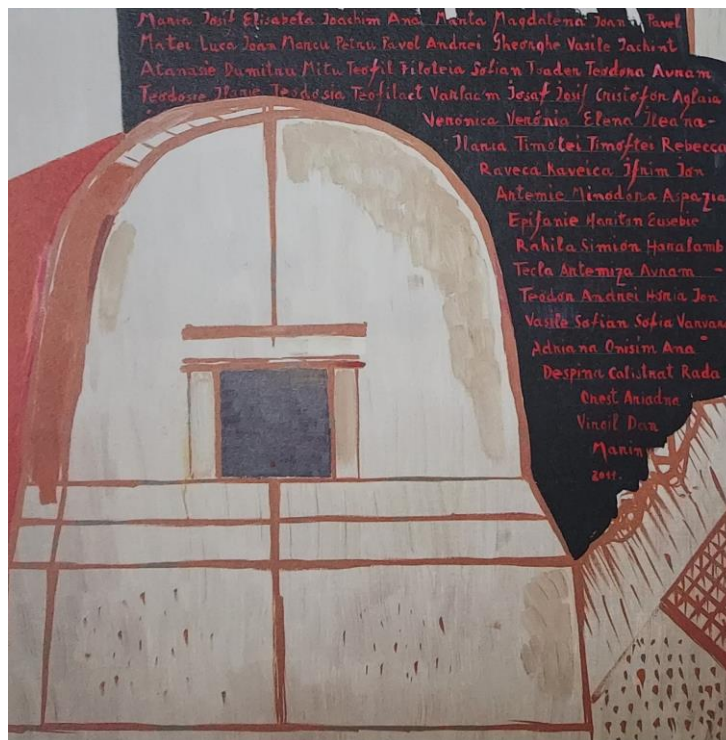 Maria Josif Elisabeta Joachim Ana Marta Magdalena Joan Pavel
Matei Luca Joan Marcu Petru Pavel Andrei Gheorghe Vasile Jachint
Atanasie Dumitru Mitu Teofil Filoteia Sofian Toader Teodora Avram
Teodosie Ilarie Teodosia Teofilact Varlaam Josaf Josif Cristofor Aglaia
Veronica Veronia Elena Ileana-
Ilaria Timotei Timoftei Rebecca
Raveca Raveica Ifrim Jon
Artemie Minodora Aspazia
Epifanie Hariton Eusebie
Rahila Simion Haralamb
Tecla Artemiza Avram
Teodor Andrei Horia Jon
Vasile Sofian Sofia Varvar
Adriana Onisim Ana
Despina Calistrat Rada
Chest Ariadna
Virgil Dan
Marin
2011.